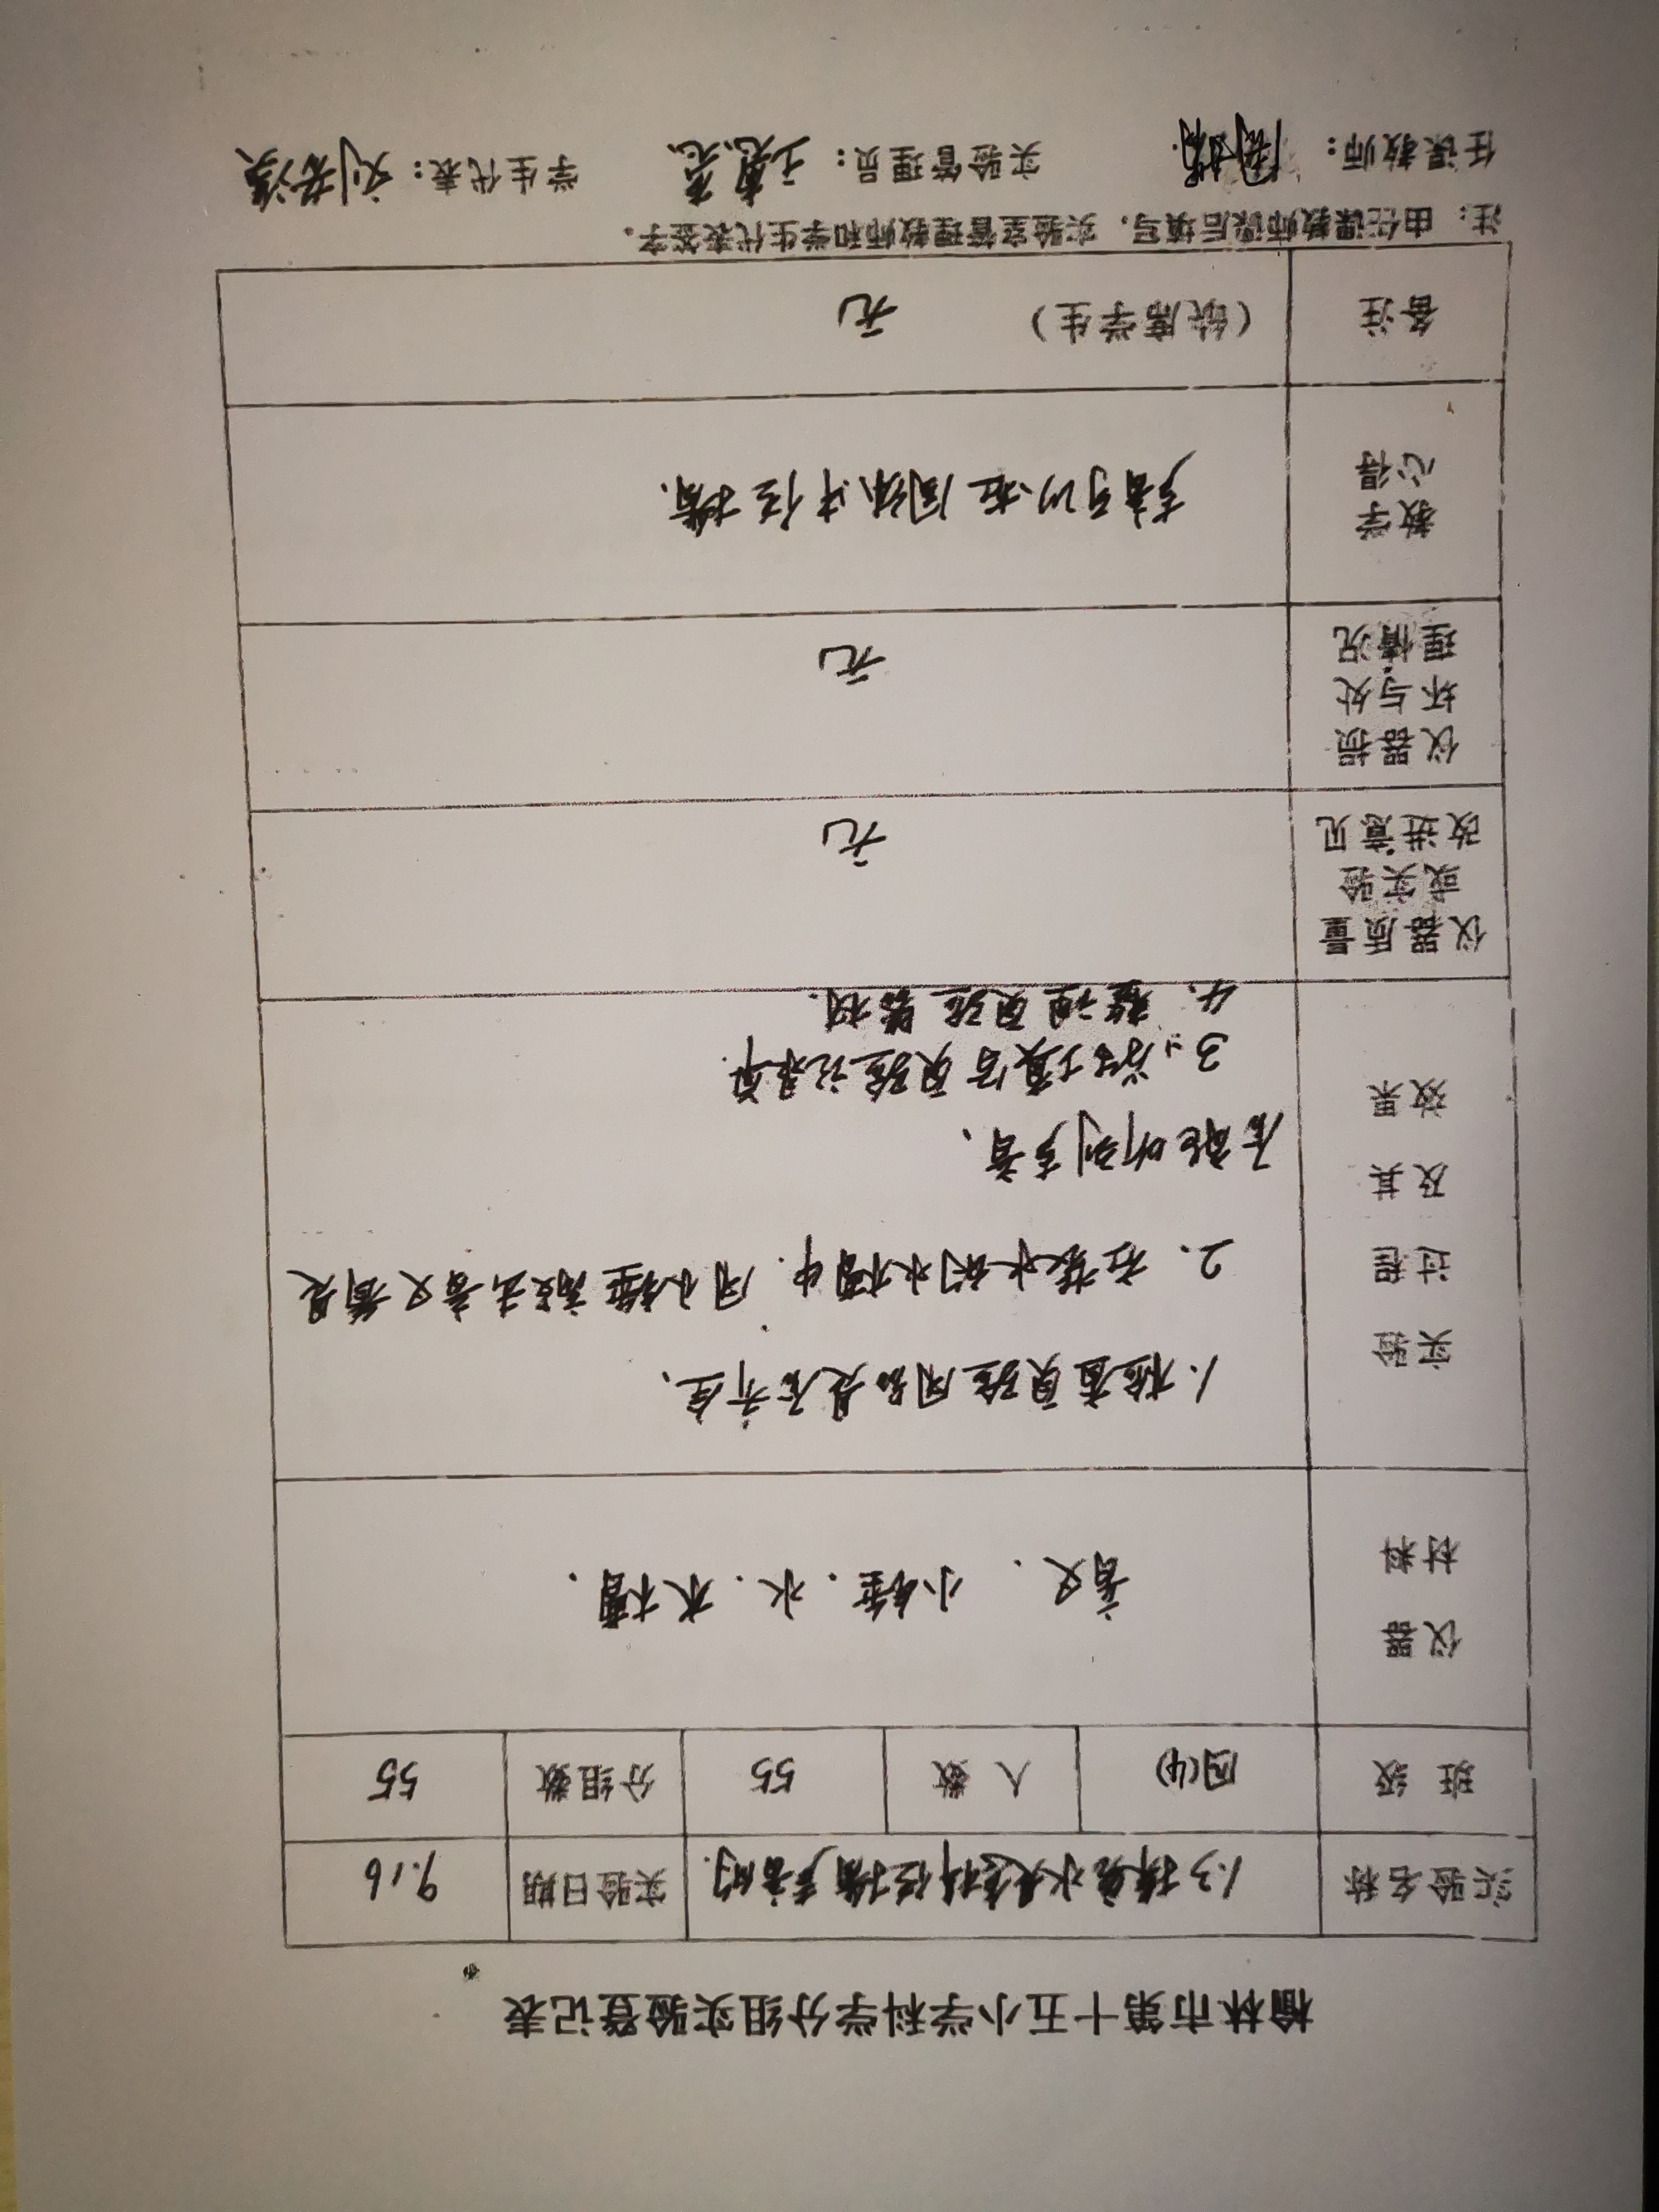 榆林市第十五小学科学分组实验登记表
实验名称 1.3探究水是怎样传播声音的. 实验日期 9.16
班级 四(4) 人数 55 分组数 55
仪器材料 音叉、小锤.水.水槽.
实验过程及其效果 1.检查实验用品是否齐全、
2、在装水的水槽中.用小锤敲击音叉看是
否能听到声音、
3、学生填写实验记录单.
4、整理实验器材.
仪器质量或实验改进意见 无
仪器损坏与处理情况 无
教学心得 声音可以在固体中传播.
备注 (缺席学生) 无
注:由任课教师课后填写,实验室管理教师和学生代表签字.
任课教师: 实验管理员: 学生代表:刘